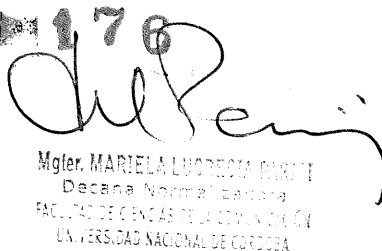 176
Mgter. MARIELA LUCRECIA PARISI
Decana Normalizadora
FACULTAD DE CIENCIAS DE LA COMUNICACIÓN
UNIVERSIDAD NACIONAL DE CÓRDOBA